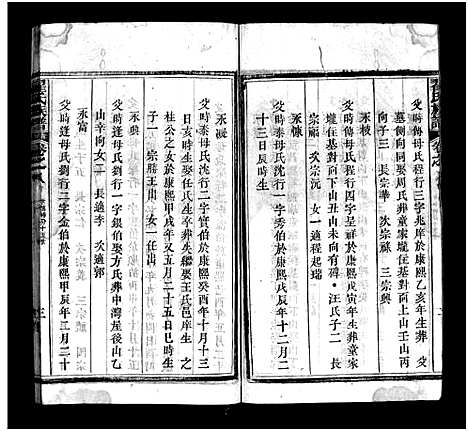 父時傳母氏程行三字兆庠於康熙乙亥年生葬
墓側向同娶周氏葬童家壠住基對面上山壬山丙
向子三 長宗華 次宗蘇 三宗興
永棪
父時傳母氏程行四字呈祥於康熙戊寅年生葬童家
壠住基對面下山丑山未向有碑 汪氏子二 長
宗洲 次宗沅 女一適程起瑞
永慷
父時泰母氏沈行一字秀伯於康熙戊辰年十二月二
十三日辰時生
永凝
父時泰母氏沈行二字實伯於康熙癸酉年十月十三
巳時生娶任氏生 卒葬 繼娶王氏邑庠生 之
桂公之女於康熙甲戌年又五月二十五日巳時生
子一 宗勝王出 女一任出
永興
父時逢母氏劉行一字銀伯娶方氏葬中灣崖後山乙
山辛向女二 長適李 次適郭
永富
父時逢母氏劉行二字金伯於康熙甲辰年三月二十